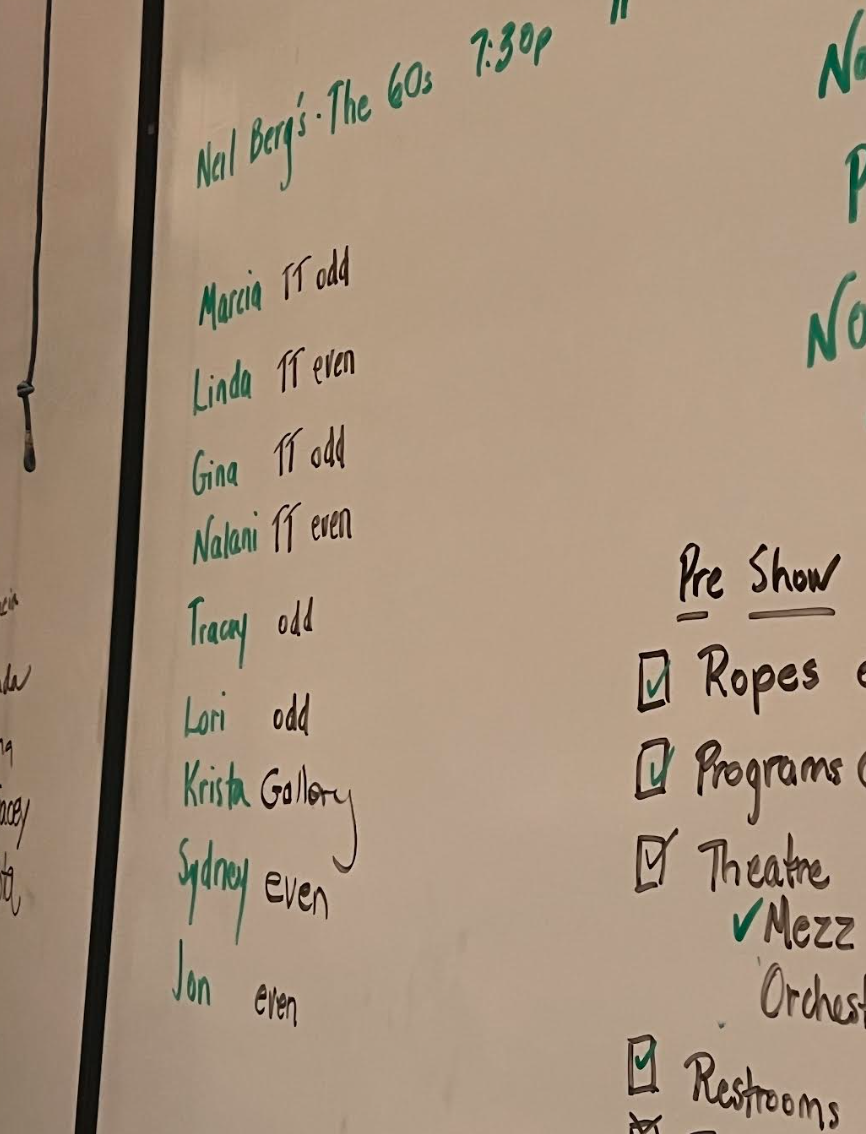 Neil Berg's · The 60s 7:30p
Marcia TT odd
Linda TT even
Gina TT odd
Nalani TT even
Tracey odd
Lori odd
Krista Gallery
Sydney even
Jon even
No
P
No
Pre Show
Ropes
Programs
Theatre
✓ Mezz
Orchest
Restrooms